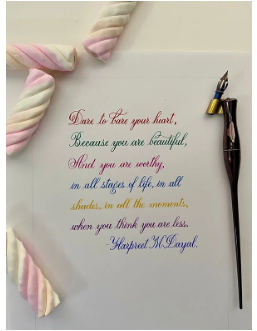 Dare to bare your heart,
Because you are beautiful,
And you are worthy,
in all stages of life, in all
shades, in all the moments,
when you think you are less.
-Harpreet M Dayal.